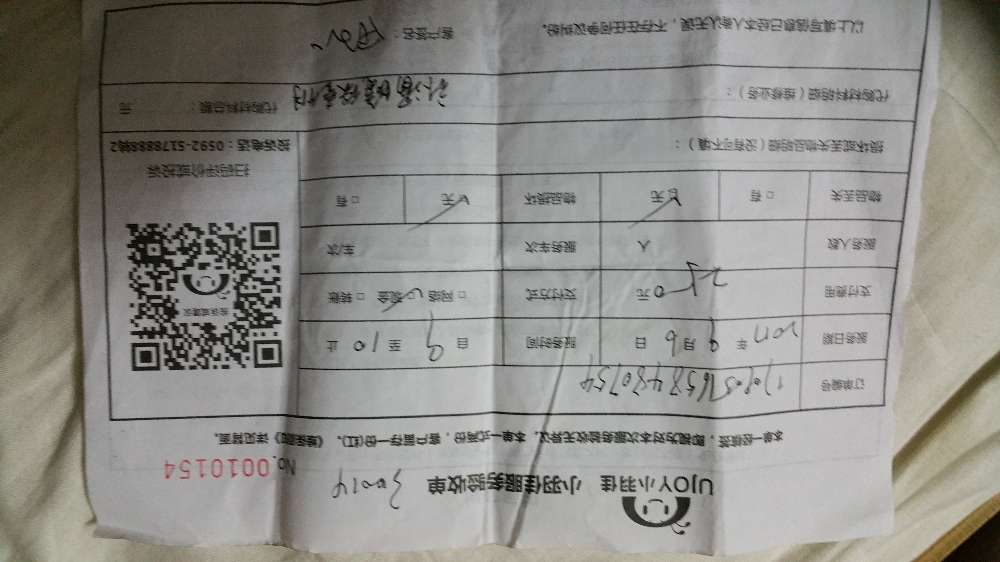 UJOY小羽佳 小羽佳服务验收单 30014
No.0010154
本单一经续签，即视为对本次服务验收无异议。本单一式两份，客户留存一份(红)。《维保细则》详见背面。
订单编号
服务日期 2017 年 9 月 6 日 服务时间 自 9 至 10 止
支付费用 250元 支付方式 □网络 □现金 □转账
服务人数 人 服务车次 车/次
物品丢失 □有 □无 物品损坏 □无 □有
投诉或建议
扫码评价或投诉
投诉电话：0592-5178888转2
损坏或丢失物品明细（没有可不填）：
代购材料明细（维修业务）： 代购材料总额： 元
以上填写信息已经本人确认无误，不存在任何争议纠纷。 客户签名：